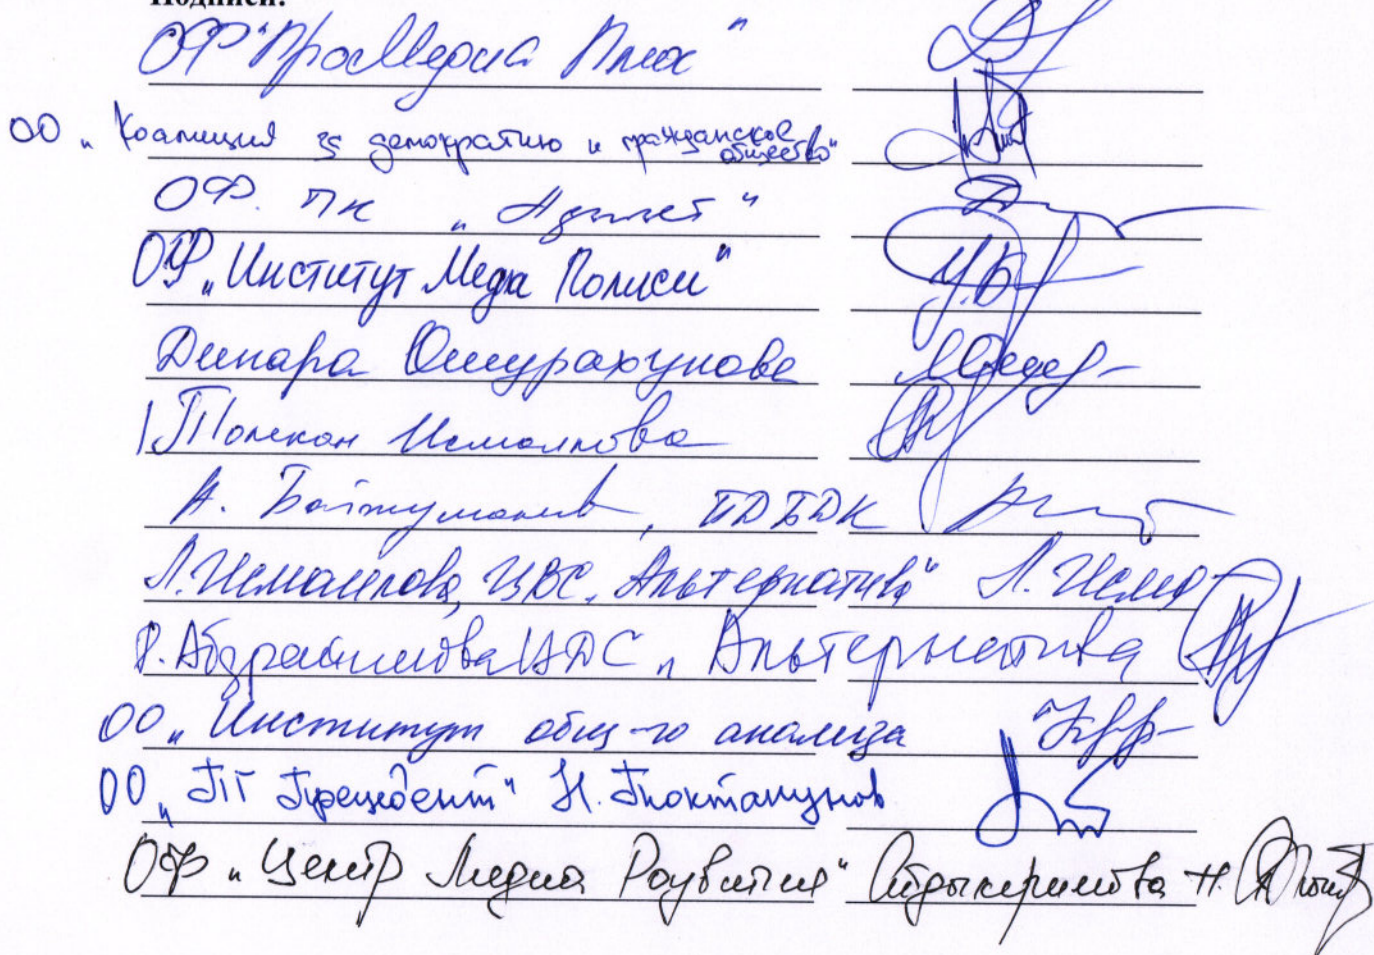 Подписи:
ОФ "ПроМедиа Плюс"
ОО „Коалиция за демократию и гражданское общество"
ОФ. ПК „Адилет"
ОФ „Институт Медиа Полиси"
Динара Ошурахунова
Толекан Исмаилова
А.
Л. Исмаилова, ЦВС „Альтернатива" Л. Исма
Р. Абдраимова „Альтернатива
ОО „Институт общ-го анализа
ОО „ПГ Прецедент" Н. Токтакунов
ОФ „Центр Медиа Развития" Сыдыкеримова Н.